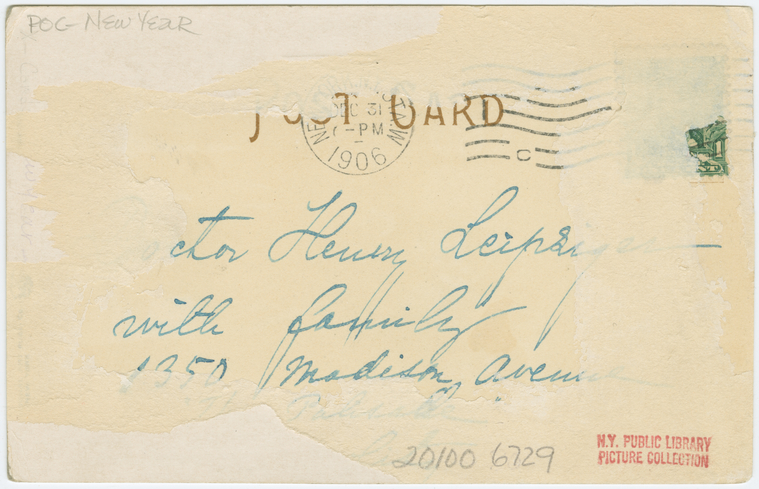 POC - NEW YEAR
POST CARD
DEC 31
-PM
1906
C
ctor Henry Leipzig
with family
1350 Madison Avenue
20100 6729
N.Y. PUBLIC LIBRARY
PICTURE COLLECTION